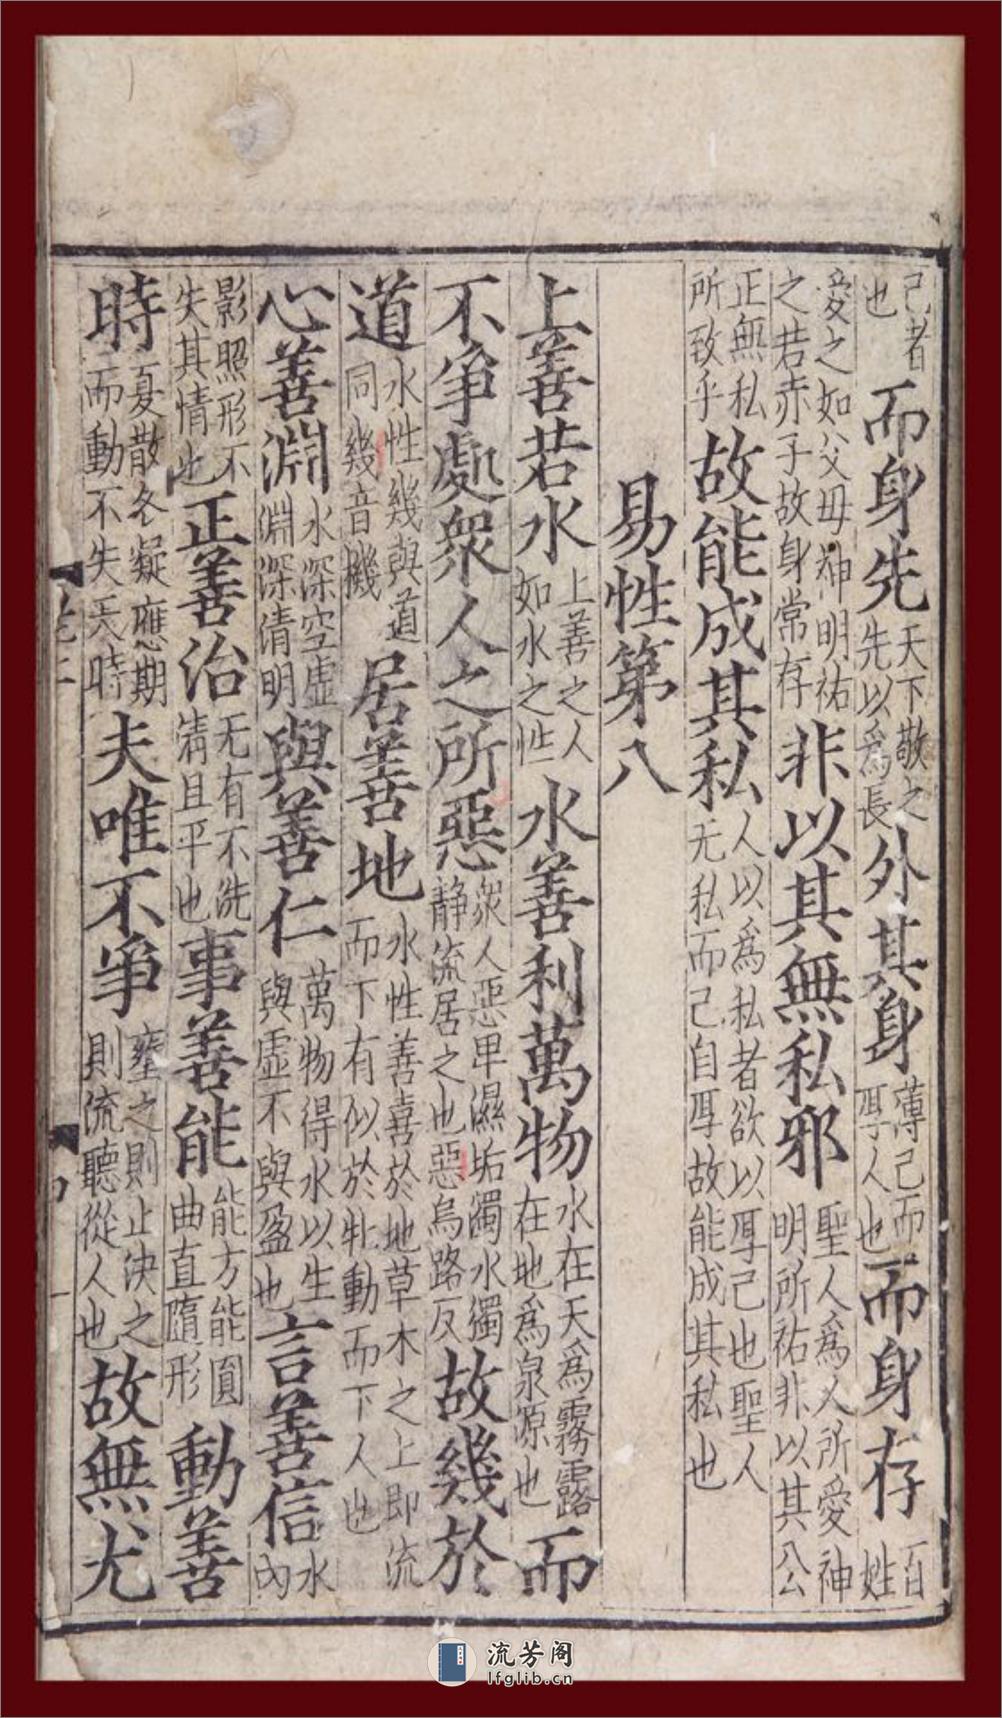 己者也而身先天下敬之先以爲長外其身薄己而厚人也而身存百姓
愛之如父母神明祐之若赤子故身常存非以其無私邪聖人爲人所愛神明所祐非以其公
正無私所致乎故能成其私人以爲私者欲以厚己也聖人无私而己自厚故能成其私也
易性第八
上善若水上善之人如水之性水善利萬物水在天爲霧露在地爲泉源也而
不爭處衆人之所惡衆人惡卑濕垢濁水獨静流居之也惡烏路反故幾於
道水性幾與道同幾音機居善地水性善喜於地草木之上即流而下有似於牝動而下人也
心善淵水深空虛淵深清明與善仁萬物得水以生與虛不與盈也言善信水内
影照形不失其情也正善治无有不洗清且平也事善能能方能圓曲直隨形動善
時夏散冬凝應期而動不失天時夫唯不爭壅之則止決之則流聽從人也故無尤
流芳阁
lfglib.cn